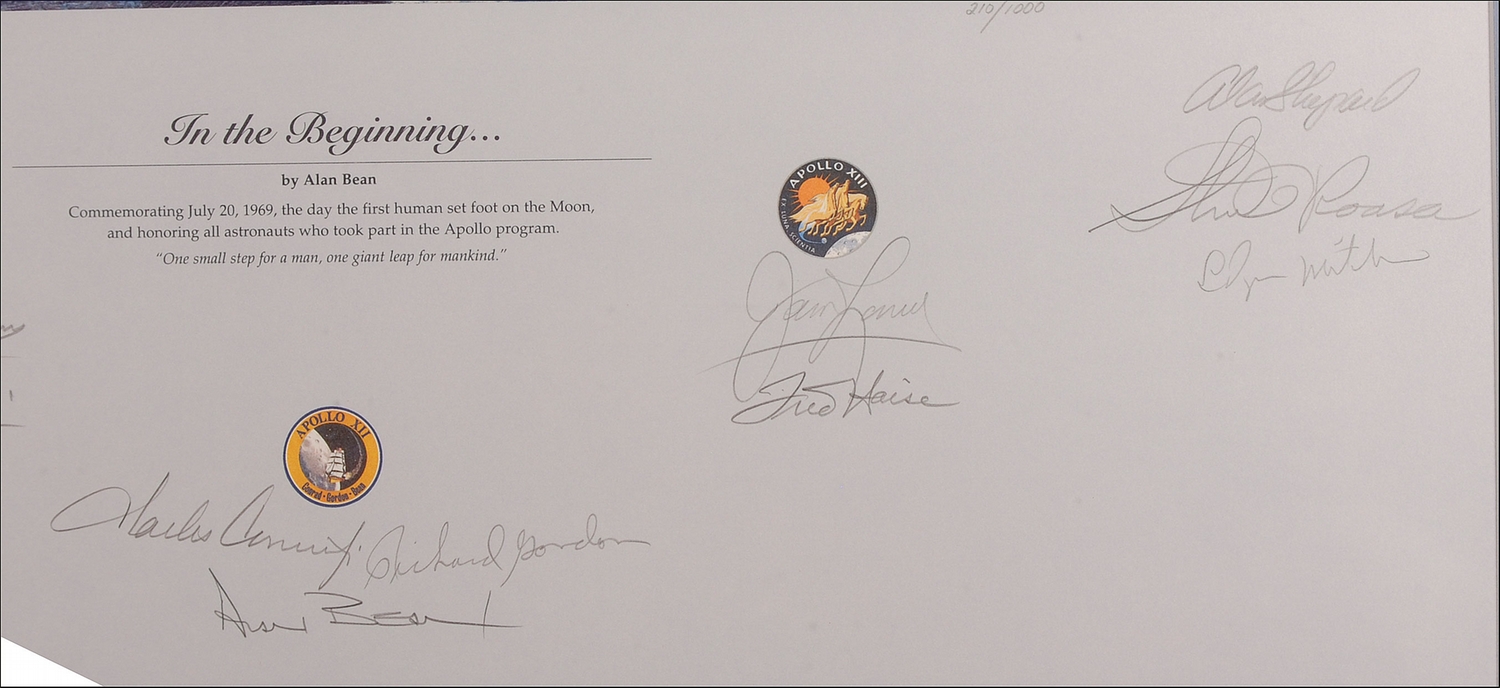 210/1000
In the Beginning...
by Alan Bean
Commemorating July 20, 1969, the day the first human set foot on the Moon,
and honoring all astronauts who took part in the Apollo program.
“One small step for a man, one giant leap for mankind.”
APOLLO XII
Conrad · Gordon · Bean
Charles Conrad Jr.
Richard Gordon
Alan Bean
APOLLO XIII
EX LUNA, SCIENTIA
James Lovell
Fred Haise
Alan Shepard
Stuart Roosa
Edgar Mitchell